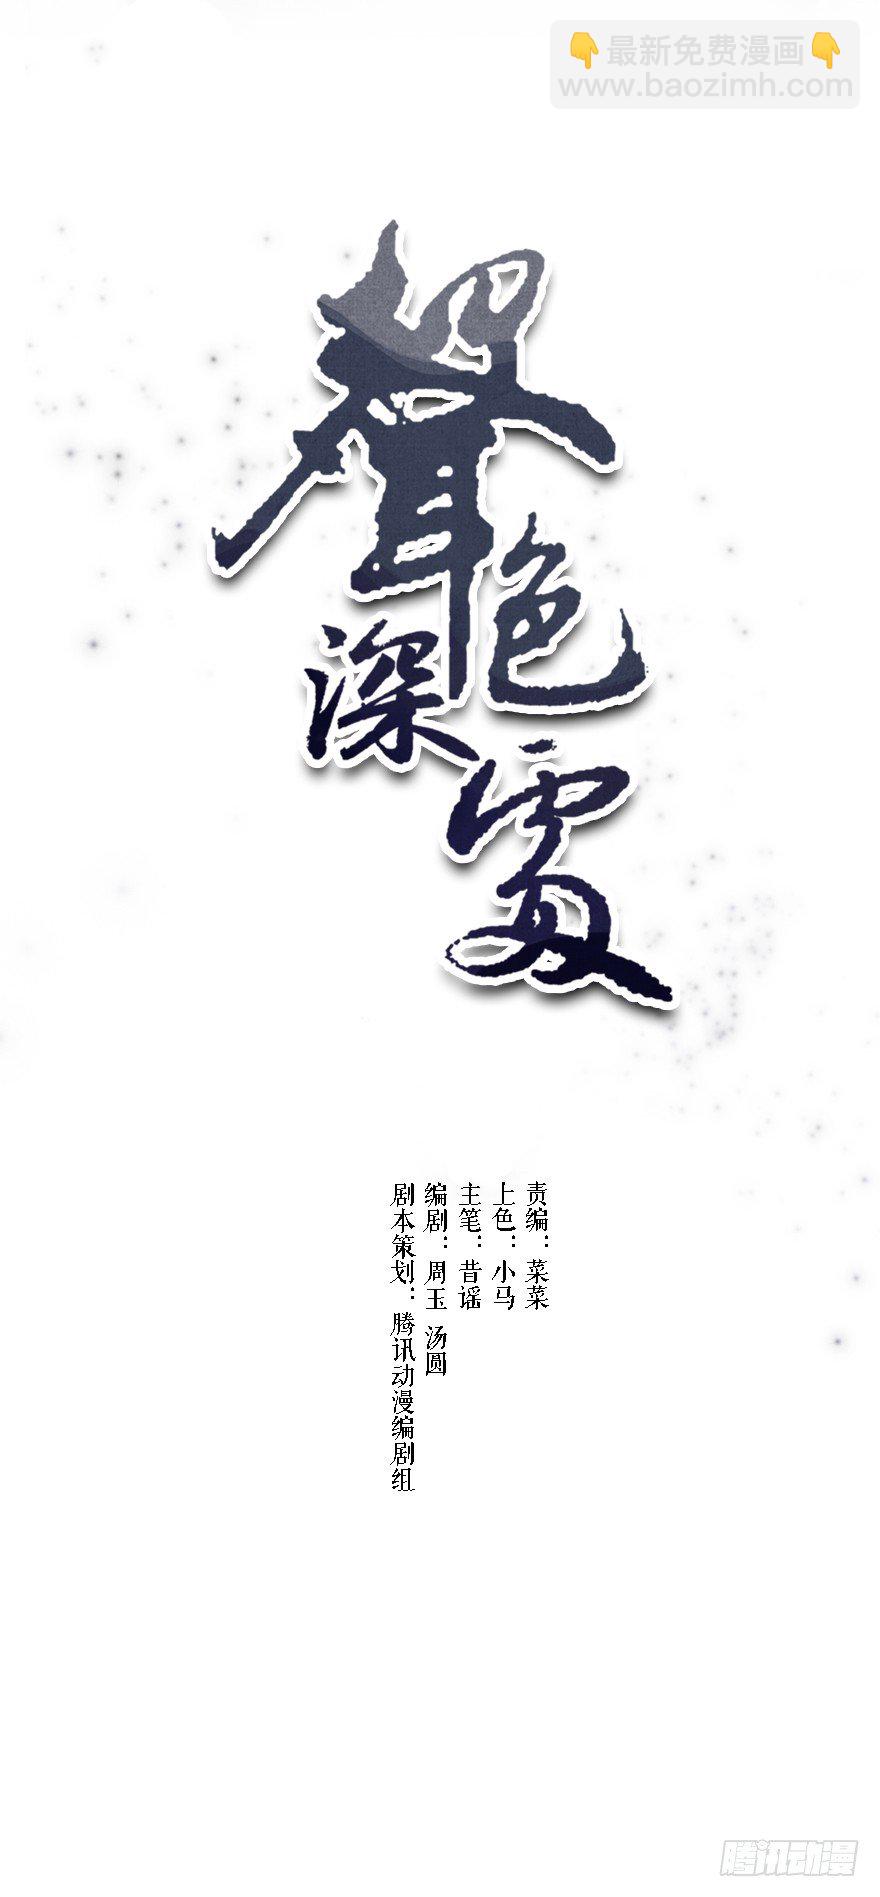 👇最新免费漫画👇
www.baozimh.com
聲色
深處
责编：菜菜
上色：小马
主笔：昔谣
编剧：周玉 汤圆
剧本策划：腾讯动漫编剧组
腾讯动漫